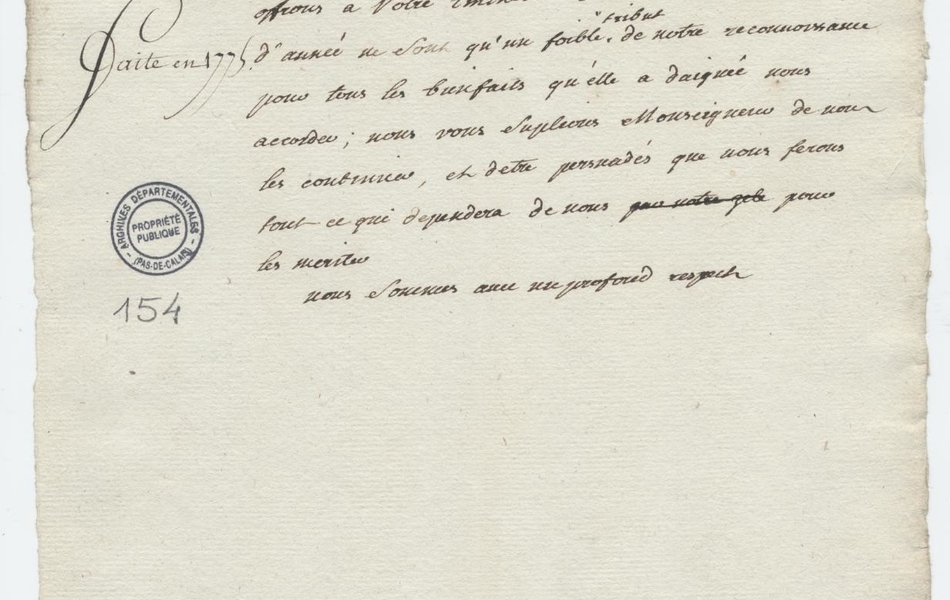 offrons a Votre
d'année ne sont qu'un foible tribut de notre reconnoissance
faite en 1775.
pour tous les bienfaits qu'elle a daignée nous
accorder ; nous vous suplions Monseigneur de nous
les continuer, et detre persuadés que nous ferons
tout ce qui dependera de nous que notre zele pour
les meriter
nous sommes avec un profond respect
ARCHIVES DÉPARTEMENTALES
PROPRIÉTÉ
PUBLIQUE
(PAS-DE-CALAIS)
154